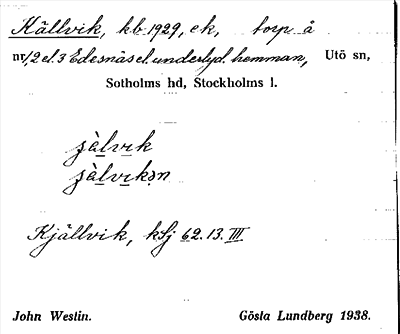 Källvik, kb. 1929, ek, torp å
nr 1, 2 el. 3 Edesnäs el. underlyd. hemman, Utö sn,
Sotholms hd, Stockholms l.
Kjällvik, ksj 62. 13. III
John Westin. Gösta Lundberg 1938.